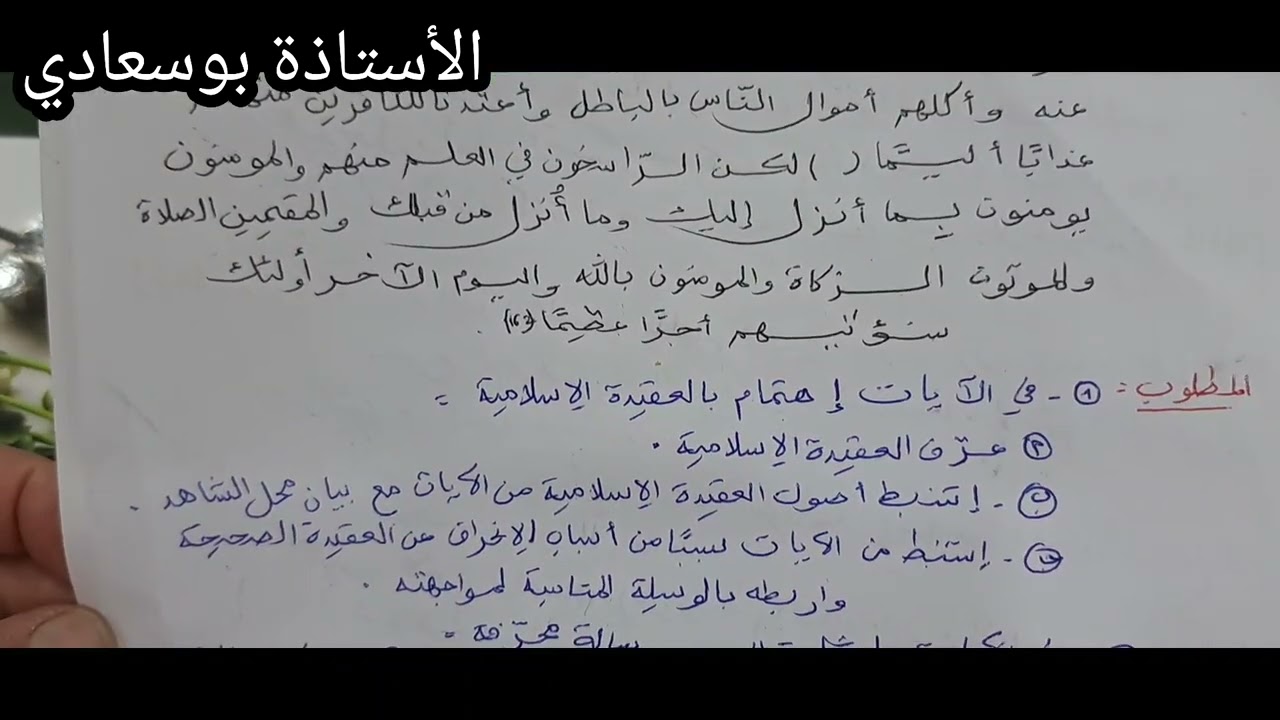 الأستاذة بوسعادي
عنه وأكلهم أموال النّاس بالباطل وأعتدنا للكافرين منهم
عذابًا أليمًا ) لكن الرّاسخون في العلم منهم والمومنون
يومنون بِما أنزل إليك وما أُنزل من قبلك والمقيمين الصلاة
والموتون الزكاة والمومنون بالله واليوم الآخر أولئك
سنؤتيهم أجرًا عظيمًا (162) .
المطلوب : ① - في الآيات إهتمام بالعقيدة الإسلامية =
عرّف العقيدة الإسلامية .
- إستنبط أصول العقيدة الإسلامية من الآيات مع بيان محل الشاهد .
- إستنبط من الآيات سببًا من أسباب الإنحراف عن العقيدة الصحيحة
واربطه بالوسيلة المناسبة لمواجهته .
رسالة محرّفة =